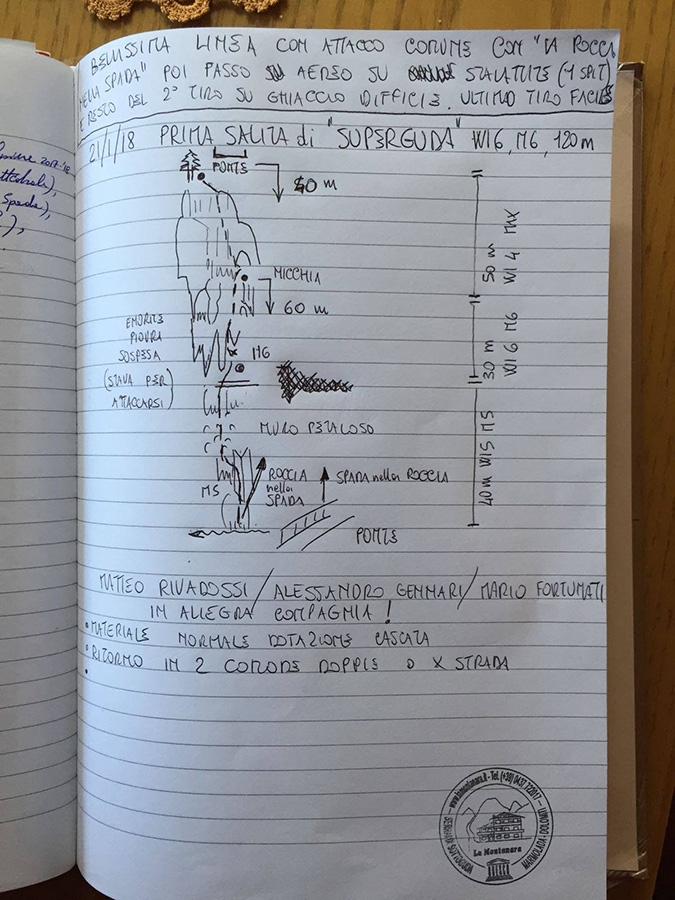 BELLISSIMA LINEA CON ATTACCO COMUNE CON "LA ROCCIA
NELLA SPADA" POI PASSO AEREO SU STALATTITE (1 SPIT)
E RESTO DEL 2° TIRO SU GHIACCIO DIFFICILE. ULTIMO TIRO FACILE
21/1/18 PRIMA SALITA di "SUPERGUDA" WI6, M6, 120m
PONTE
50 m
MICCHIA
60 m
ENORME
PIOVRA
SOSPESA
(STAVA PER
ATTACCARSI)
M6
MURO PETALOSO
M5
ROCCIA
nella
SPADA
SPADA nella ROCCIA
PONTE
50 m
WI 4 MAX
30 m
WI 6 M6
40m WI5 M5
MATTEO RIVADOSSI / ALESSANDRO GENNARI / MARIO FORTUNATI
IN ALLEGRA COMPAGNIA!
• MATERIALE NORMALE DOTAZIONE CASCATA
• RITORNO IN 2 COMODE DOPPIE O X STRADA
2017-'18
Spada),
www.lamontanara.it - Tel. (+39) 0437 722017
La Montanara
MARMOLADA - DOLOMITI